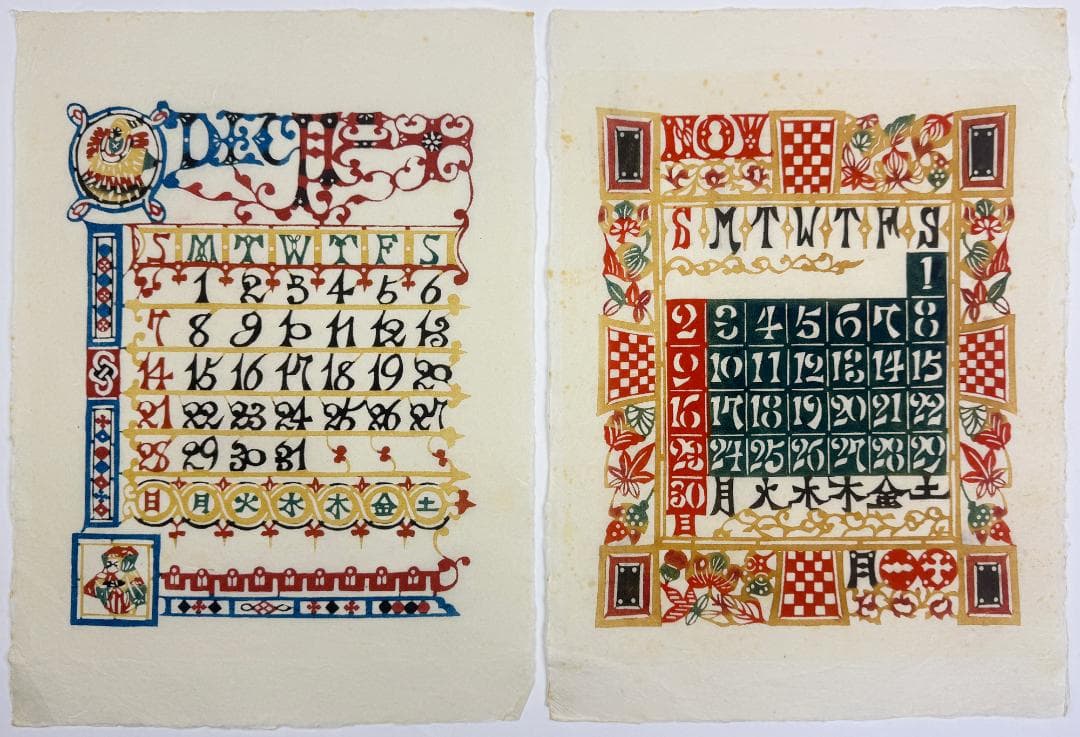 DEC
S M T W T F S
1 2 3 4 5 6
7 8 9 10 11 12 13
14 15 16 17 18 19 20
21 22 23 24 25 26 27
28 29 30 31
日 月 火 水 木 金 土
NOV
S M T W T F S
1
2 3 4 5 6 7 8
9 10 11 12 13 14 15
16 17 18 19 20 21 22
23 24 25 26 27 28 29
30 月 火 水 木 金 土
日
月